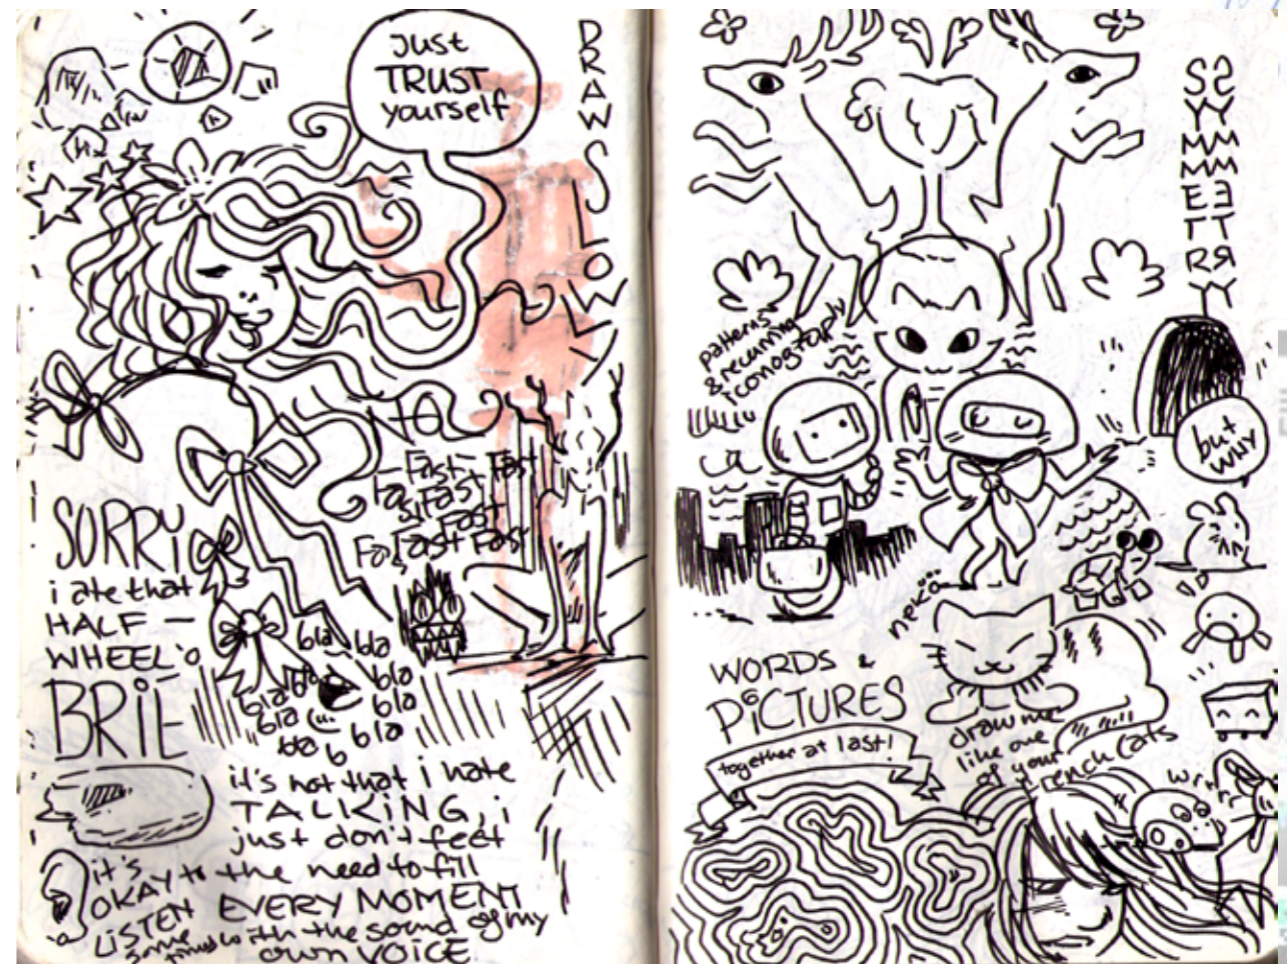 Just
TRUST
yourself
DRAW SLOWLY
Fast Fast
Fast
Fast
Fast Fast
SORRY
i ate that
HALF —
WHEEL O
BRIE
bla bla
bla bla
bla bla
bla bla
bla
it's not that i hate
TALKING, i
just don't feel
the need to fill
EVERY MOMENT
with the sound of my
own VOICE
it's
OKAY to
LISTEN
some times
SYMMETRY
patterns
& recurring
iconography
but
WHY
neko
WORDS &
PiCTURES
together at last!
draw me
like one
of your
French Cats